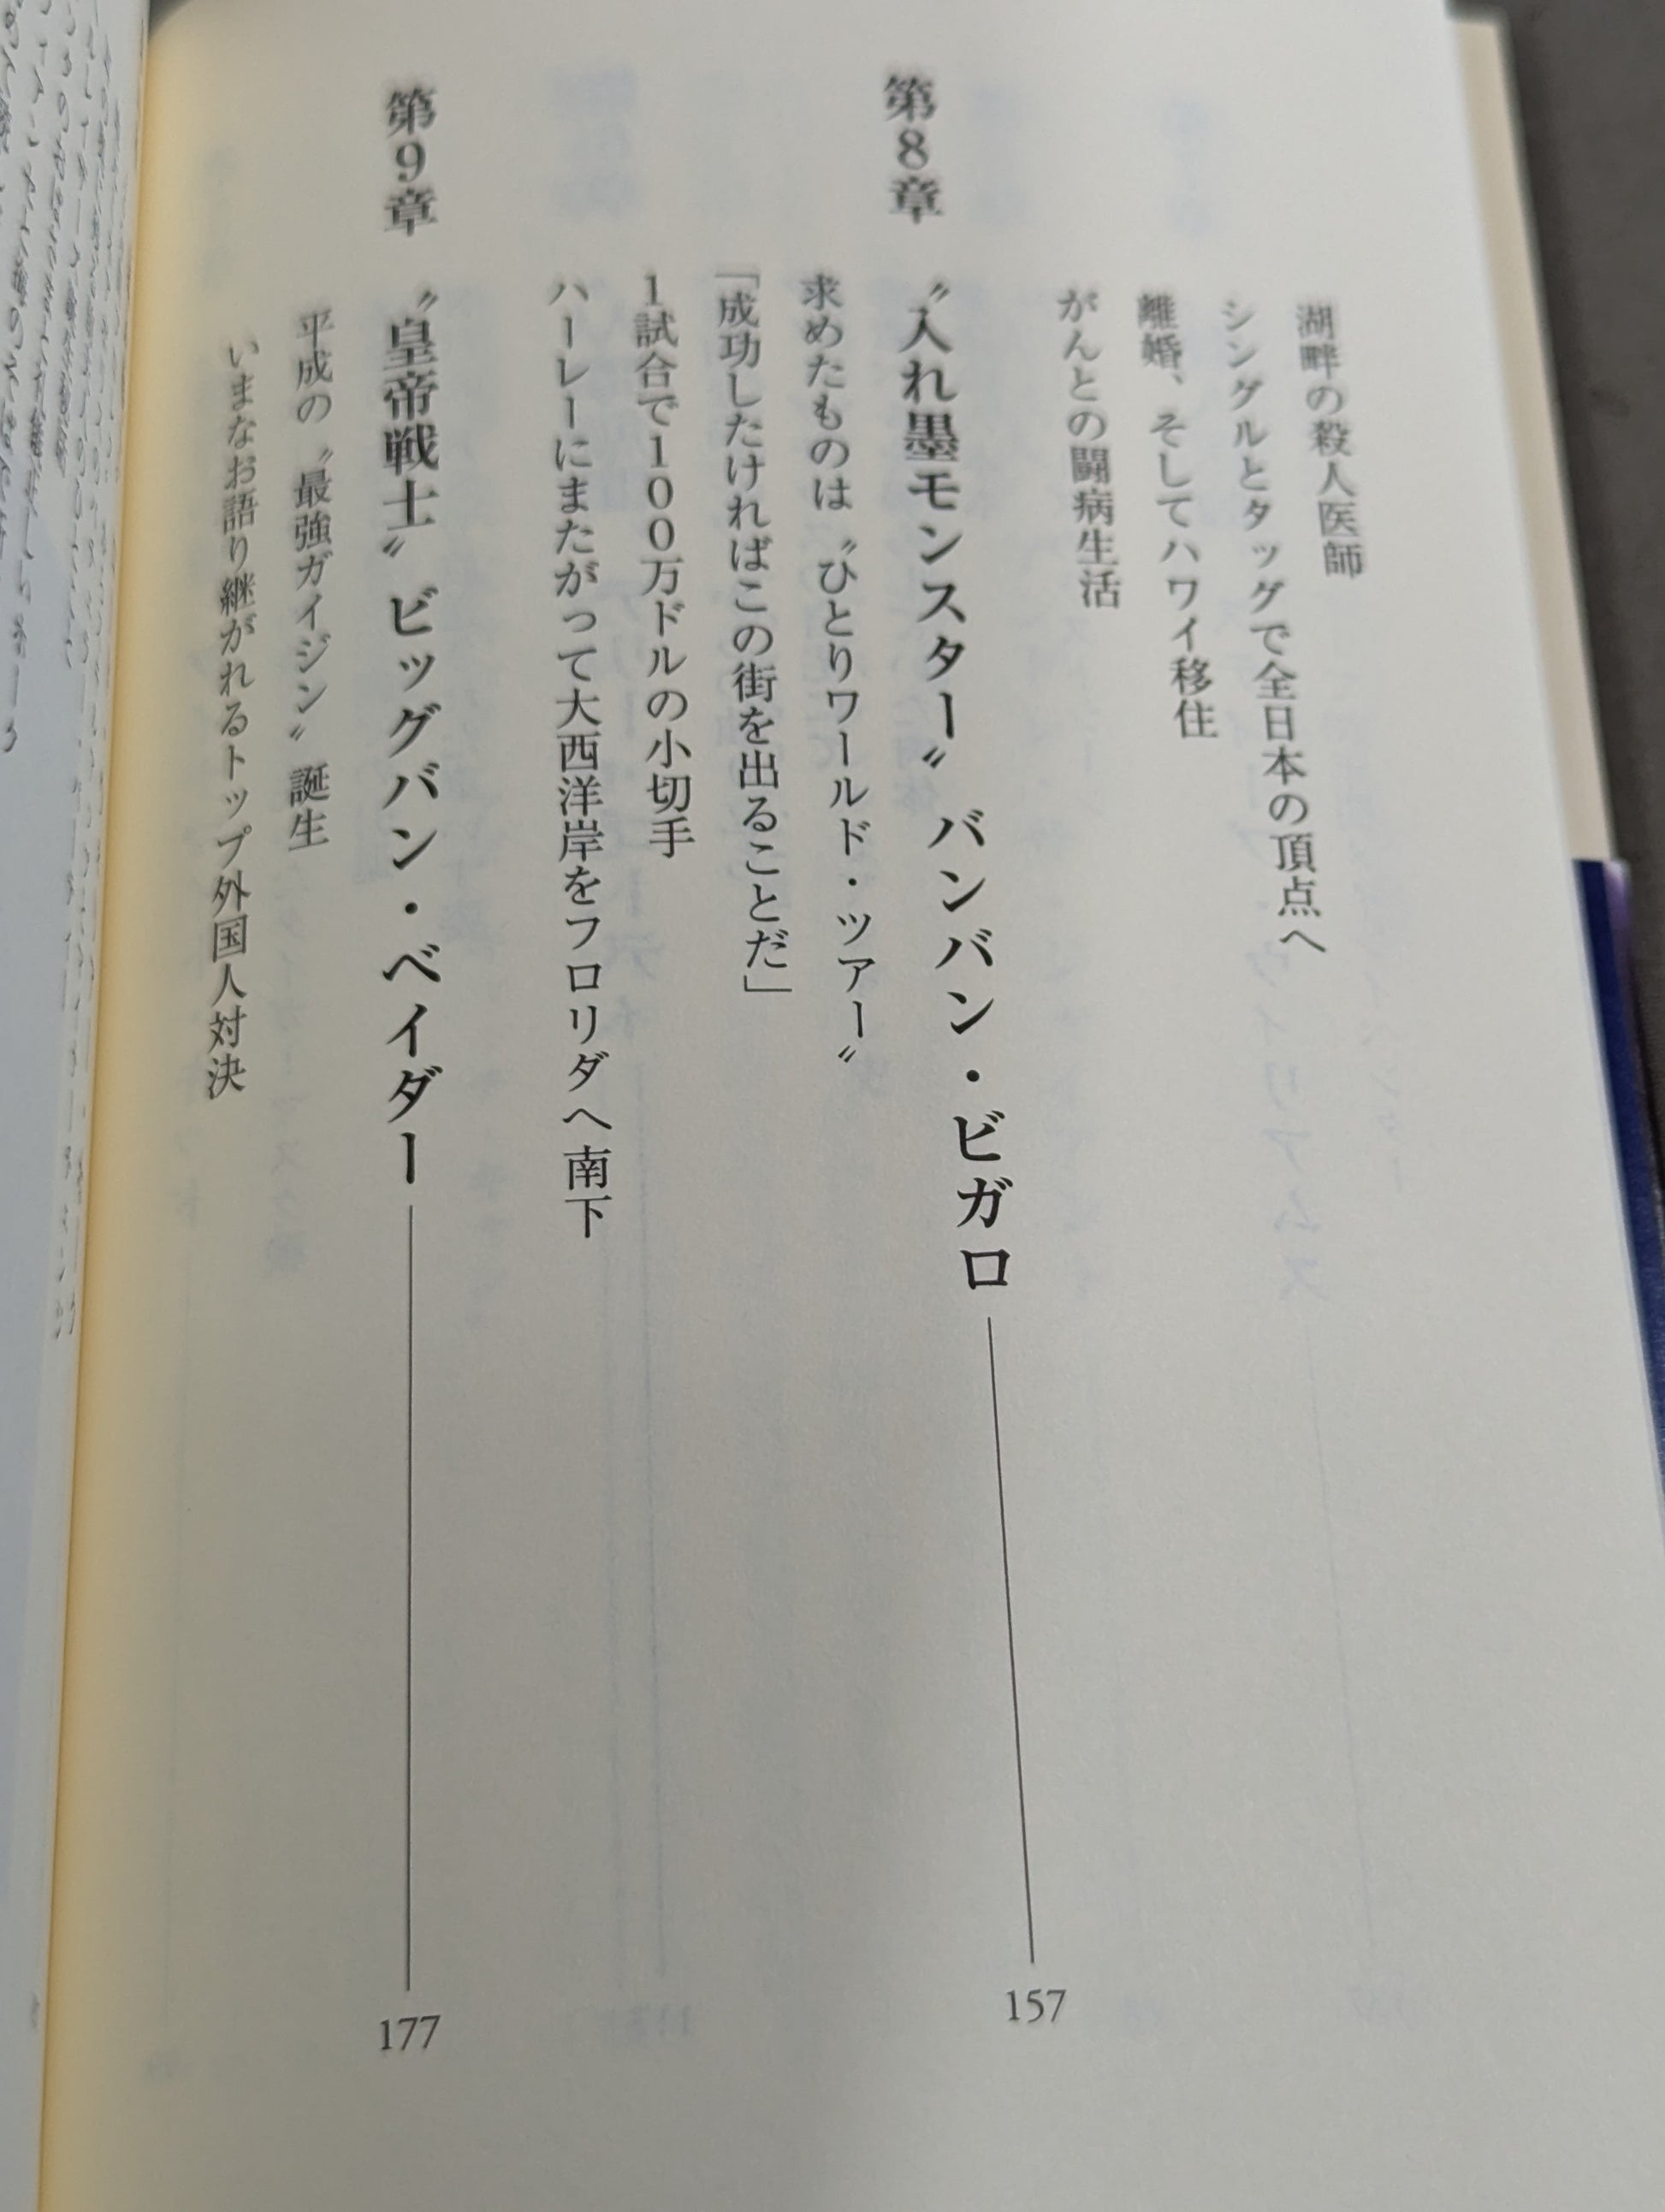 湖畔の殺人医師
シングルとタッグで全日本の頂点へ
離婚、そしてハワイ移住
がんとの闘病生活
第8章 〝入れ墨モンスター〟バンバン・ビガロ 157
求めたものは〝ひとりワールド・ツアー〟
「成功したければこの街を出ることだ」
1試合で100万ドルの小切手
ハーレーにまたがって大西洋岸をフロリダへ南下
第9章 〝皇帝戦士〟ビッグバン・ベイダー 177
平成の〝最強ガイジン〟誕生
いまなお語り継がれるトップ外国人対決